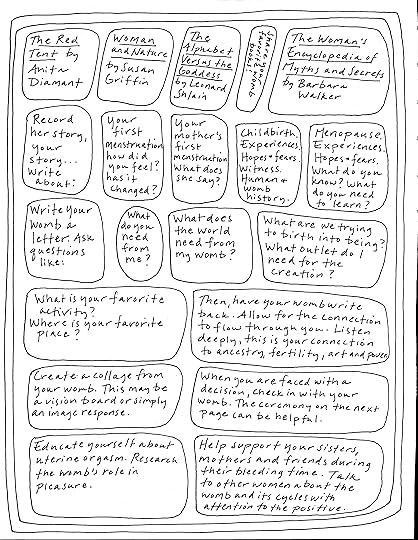 The Red
Tent by
Anita
Diamant
Woman
and Nature
by Susan
Griffin
The
Alphabet
Versus the
Goddess
by Leonard
Shlain
Share your
favorite womb
books!
The Woman's
Encyclopedia of
Myths and Secrets
by Barbara
Walker
Record
her story,
your
story...
Write
about:
Your
first
menstruation
how did
you feel?
has it
changed?
Your
mother's
first
menstruation
What does
she say?
Childbirth
Experiences.
Hopes + fears.
Witness.
Human +
womb
history.
Menopause.
Experiences.
Hopes + fears.
What do you
know? What
do you need
to learn?
Write your
womb a
letter. Ask
questions
like:
What
do you
need
from
me?
What does
the world
need from
my womb?
What are we trying
to birth into being?
What outlet do I
need for the
creation?
What is your favorite
activity?
Where is your favorite
place?
Then, have your womb write
back. Allow for the connection
to flow through you. Listen
deeply, this is your connection
to ancestry, fertility, art and power.
Create a collage from
your womb. This may be
a vision board or simply
an image response.
When you are faced with a
decision, check in with your
womb. The ceremony on the next
page can be helpful.
Educate yourself about
uterine orgasm. Research
the womb's role in
pleasure.
Help support your sisters,
mothers and friends during
their bleeding time. Talk
to other women about the
womb and its cycles with
attention to the positive.